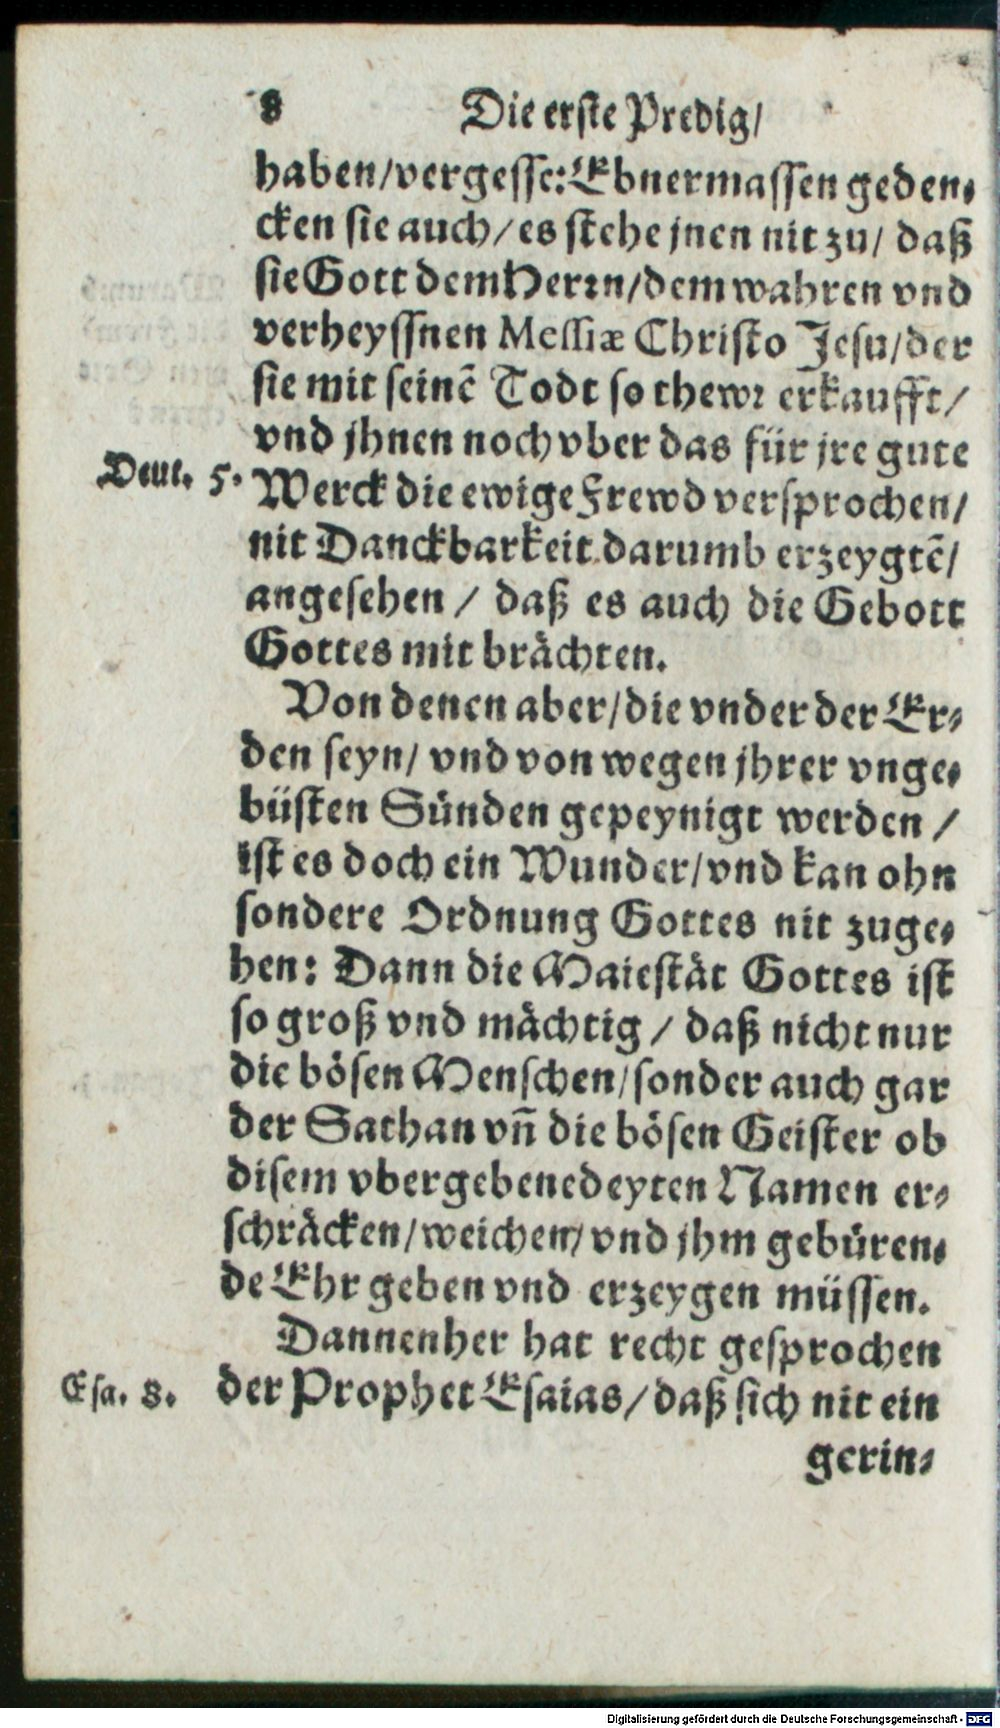 8 Die erste Predig/
haben/vergesse: Ebnermassen geden⸗
cken sie auch/es stehe jnen nit zu/ daß
sie Gott dem Herꝛn/dem wahren vnd
verheyssnen Messiæ Christo Jesu/der
sie mit seinẽ Todt so thewꝛ erkaufft/
vnd jhnen noch vber das für jre gute
Deut. 5. Werck die ewige Frewd versprochen/
nit Danckbarkeit darumb erzeygtẽ/
angesehen / daß es auch die Gebott
Gottes mit brächten.
Von denen aber/die vnder der Er⸗
den seyn/ vnd von wegen jhrer vnge⸗
büsten Sünden gepeynigt werden /
ist es doch ein Wunder/vnd kan ohn
sondere Ordnung Gottes nit zuge⸗
hen: Dann die Maiestät Gottes ist
so groß vnd mächtig / daß nicht nur
die bösen Menschen/sonder auch gar
der Sathan vñ die bösen Geister ob
disem vbergebenedeyten Namen er⸗
schräcken/weichen/vnd jhm gebüren⸗
de Ehr geben vnd erzeygen müssen.
Dannenher hat recht gesprochen
Esa. 8. der Prophet Esaias/daß sich nit ein
gerin⸗
Digitalisierung gefördert durch die Deutsche Forschungsgemeinschaft - DFG